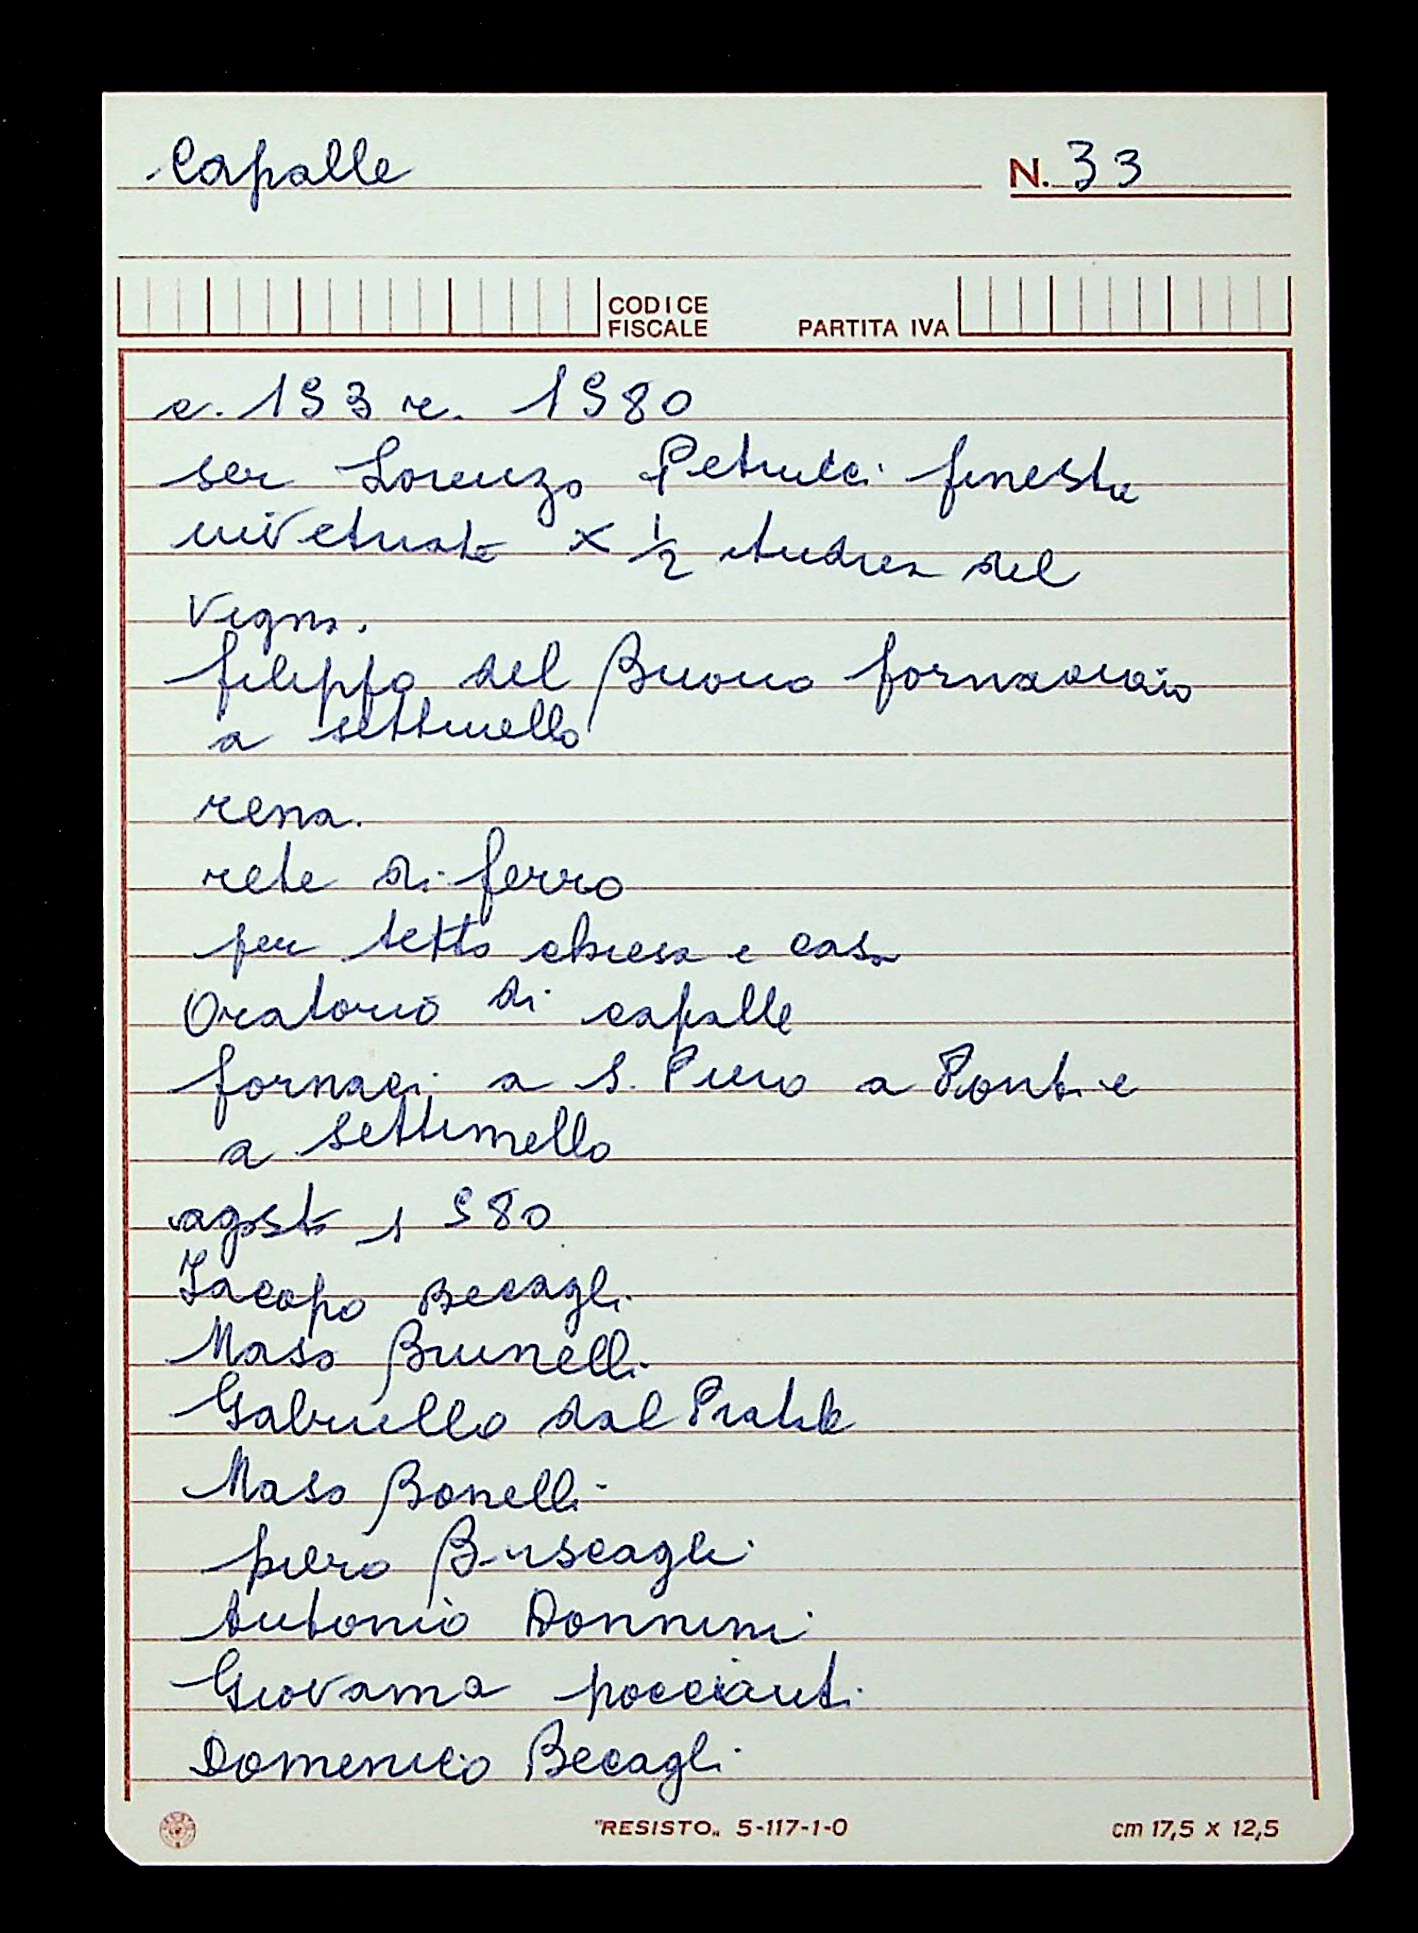 Capalle
N. 33
CODICE FISCALE PARTITA IVA
c. 193 r. 1980
ser Lorenzo Petrucci finestra
invetriata x 1/2 Andrea del
Vigna.
filippo del Buono fornaciaio
a settimello
rena.
rete di ferro
per tetto chiesa e casa
Oratorio di capalle
fornaci a S. Piero a Ponti e
a settimello
agosto 1980
Iacopo Becagli
Maso Brunelli
Gabriello dal Prato
Maso Bonelli
piero Buscagli
Antonio Donnini
Giovanna poccianti
Domenico Becagli
"RESISTO„ 5-117-1-0 cm 17,5 x 12,5